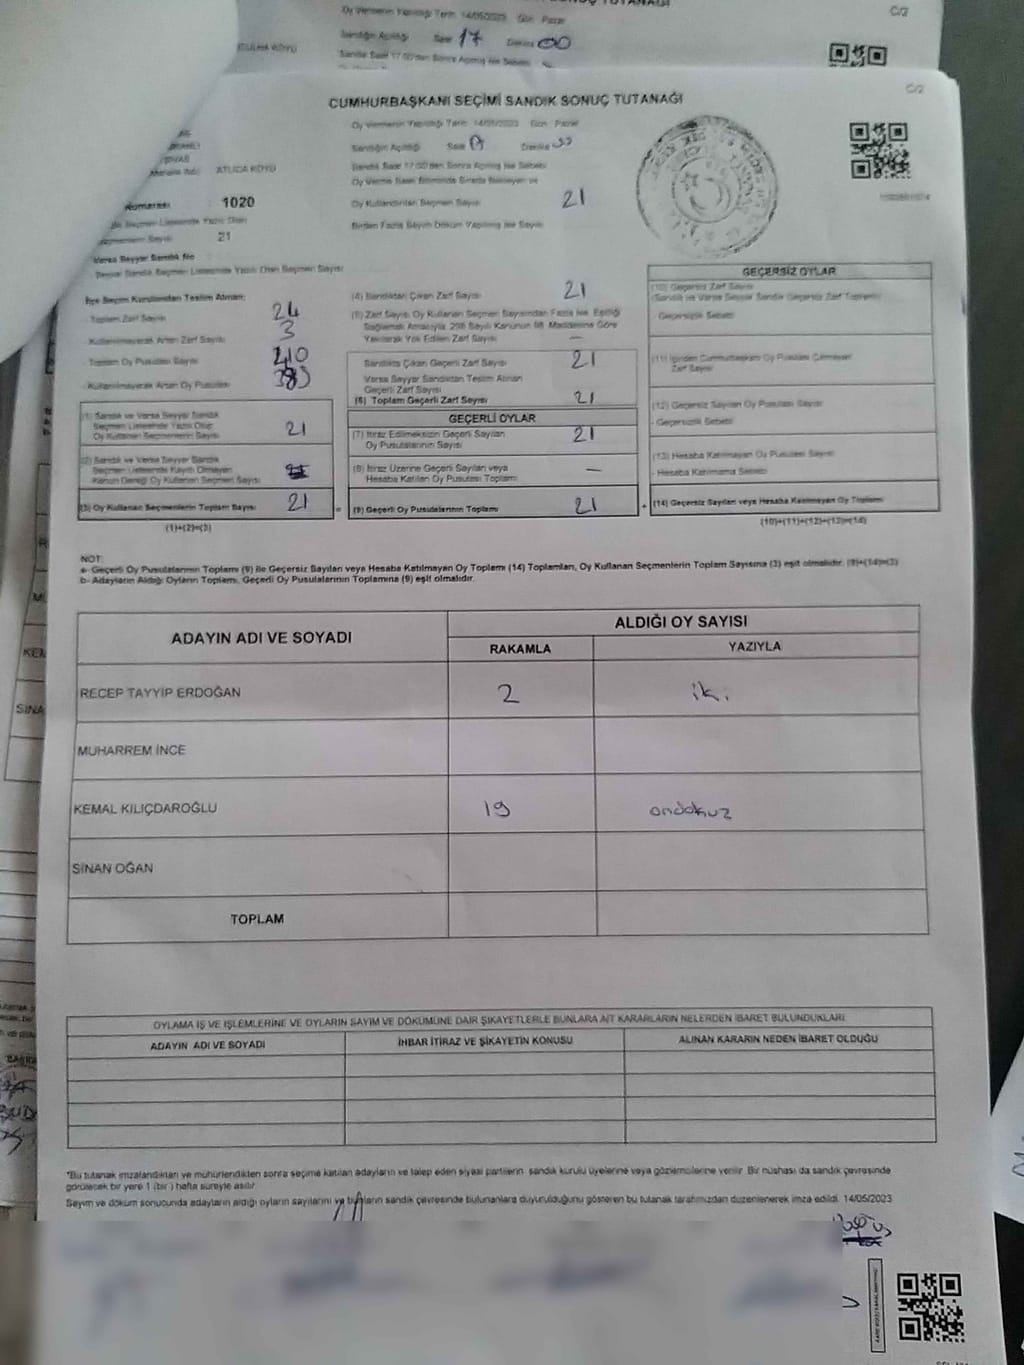 Oy Vermenin Yapıldığı Tarih 14/05/2023 Gün Pazar
C/2
Sandığın Açıldığı Saat 17 Dakika 00
Sandık Saat 17:00'den Sonra Açılmış İse Sebebi
C/2
CUMHURBAŞKANI SEÇİMİ SANDIK SONUÇ TUTANAĞI
Oy Vermenin Yapıldığı Tarih 14/05/2023 Gün Pazar
Sandığın Açıldığı Saat Dakika
Sandık Saat 17:00'den Sonra Açılmış İse Sebebi
Oy Verme Saati Bitiminde Sırada Bekleyen ve
Oy Kullandırılan Seçmen Sayısı 21
Birden Fazla Sayım Döküm Yapılmış İse Sayısı
KÖYÜ
Numarası 1020
Seçmen Listesinde Yazılı Olan
Seçmenlerin Sayısı 21
Varsa Seyyar Sandık No
Seyyar Sandık Seçmen Listesinde Yazılı Olan Seçmen Sayısı
İlçe Seçim Kurulundan Teslim Alınan;
Toplam Zarf Sayısı 24
Kullanılmayarak Artan Zarf Sayısı 3
Toplam Oy Pusulası Sayısı
Kullanılmayarak Artan Oy Pusulası
(1) Sandık ve Varsa Seyyar Sandık
Seçmen Listesinde Yazılı Olup
Oy Kullanan Seçmenlerin Sayısı 21
(2) Sandık ve Varsa Seyyar Sandık
Seçmen Listesinde Kayıtlı Olmayan
Kanun Gereği Oy Kullanan Seçmen Sayısı
(3) Oy Kullanan Seçmenlerin Toplam Sayısı 21
(1)+(2)=(3)
(4) Sandıktan Çıkan Zarf Sayısı 21
(5) Zarf Sayısı, Oy Kullanan Seçmen Sayısından Fazla İse, Eşitliği
Sağlamak Amacıyla, 298 Sayılı Kanunun 98. Maddesine Göre
Yakılarak Yok Edilen Zarf Sayısı —
Sandıkta Çıkan Geçerli Zarf Sayısı 21
Varsa Seyyar Sandıktan Teslim Alınan
Geçerli Zarf Sayısı
(6) Toplam Geçerli Zarf Sayısı 21
GEÇERLİ OYLAR
(7) İtiraz Edilmeksizin Geçerli Sayılan
Oy Pusulalarının Sayısı 21
(8) İtiraz Üzerine Geçerli Sayılan veya
Hesaba Katılan Oy Pusulası Toplamı —
(9) Geçerli Oy Pusulalarının Toplamı 21
GEÇERSİZ OYLAR
(10) Geçersiz Zarf Sayısı
(Sandık ve Varsa Seyyar Sandık Geçersiz Zarf Toplamı)
- Geçersizlik Sebebi
(11) İçinden Cumhurbaşkanı Oy Pusulası Çıkmayan
Zarf Sayısı
(12) Geçersiz Sayılan Oy Pusulası Sayısı
- Geçersizlik Sebebi
(13) Hesaba Katılmayan Oy Pusulası Sayısı
- Hesaba Katılmama Sebebi
(14) Geçersiz Sayılan veya Hesaba Katılmayan Oy Toplamı
(10)+(11)+(12)+(13)=(14)
NOT:
a- Geçerli Oy Pusulalarının Toplamı (9) ile Geçersiz Sayılan veya Hesaba Katılmayan Oy Toplamı (14) Toplamları, Oy Kullanan Seçmenlerin Toplam Sayısına (3) eşit olmalıdır. (9)+(14)=(3)
b- Adayların Aldığı Oyların Toplamı, Geçerli Oy Pusulalarının Toplamına (9) eşit olmalıdır.
ADAYIN ADI VE SOYADI
ALDIĞI OY SAYISI
RAKAMLA YAZIYLA
RECEP TAYYİP ERDOĞAN 2 iki
MUHARREM İNCE
KEMAL KILIÇDAROĞLU 19 ondokuz
SİNAN OĞAN
TOPLAM
OYLAMA İŞ VE İŞLEMLERİNE VE OYLARIN SAYIM VE DÖKÜMÜNE DAİR ŞİKAYETLERLE BUNLARA AİT KARARLARIN NELERDEN İBARET BULUNDUKLARI
ADAYIN ADI VE SOYADI İHBAR İTİRAZ VE ŞİKAYETİN KONUSU ALINAN KARARIN NEDEN İBARET OLDUĞU
*Bu tutanak imzalandıktan ve mühürlendikten sonra seçime katılan adayların ve talep eden siyasi partilerin sandık kurulu üyelerine veya gözlemcilerine verilir. Bir nüshası da sandık çevresinde
görülecek bir yere 1 (bir) hafta süreyle asılır.
Sayım ve döküm sonucunda adayların aldığı oyların sayılarını ve bunların sandık çevresinde bulunanlara duyurulduğunu gösteren bu tutanak tarafımızdan düzenlenerek imza edildi. 14/05/2023